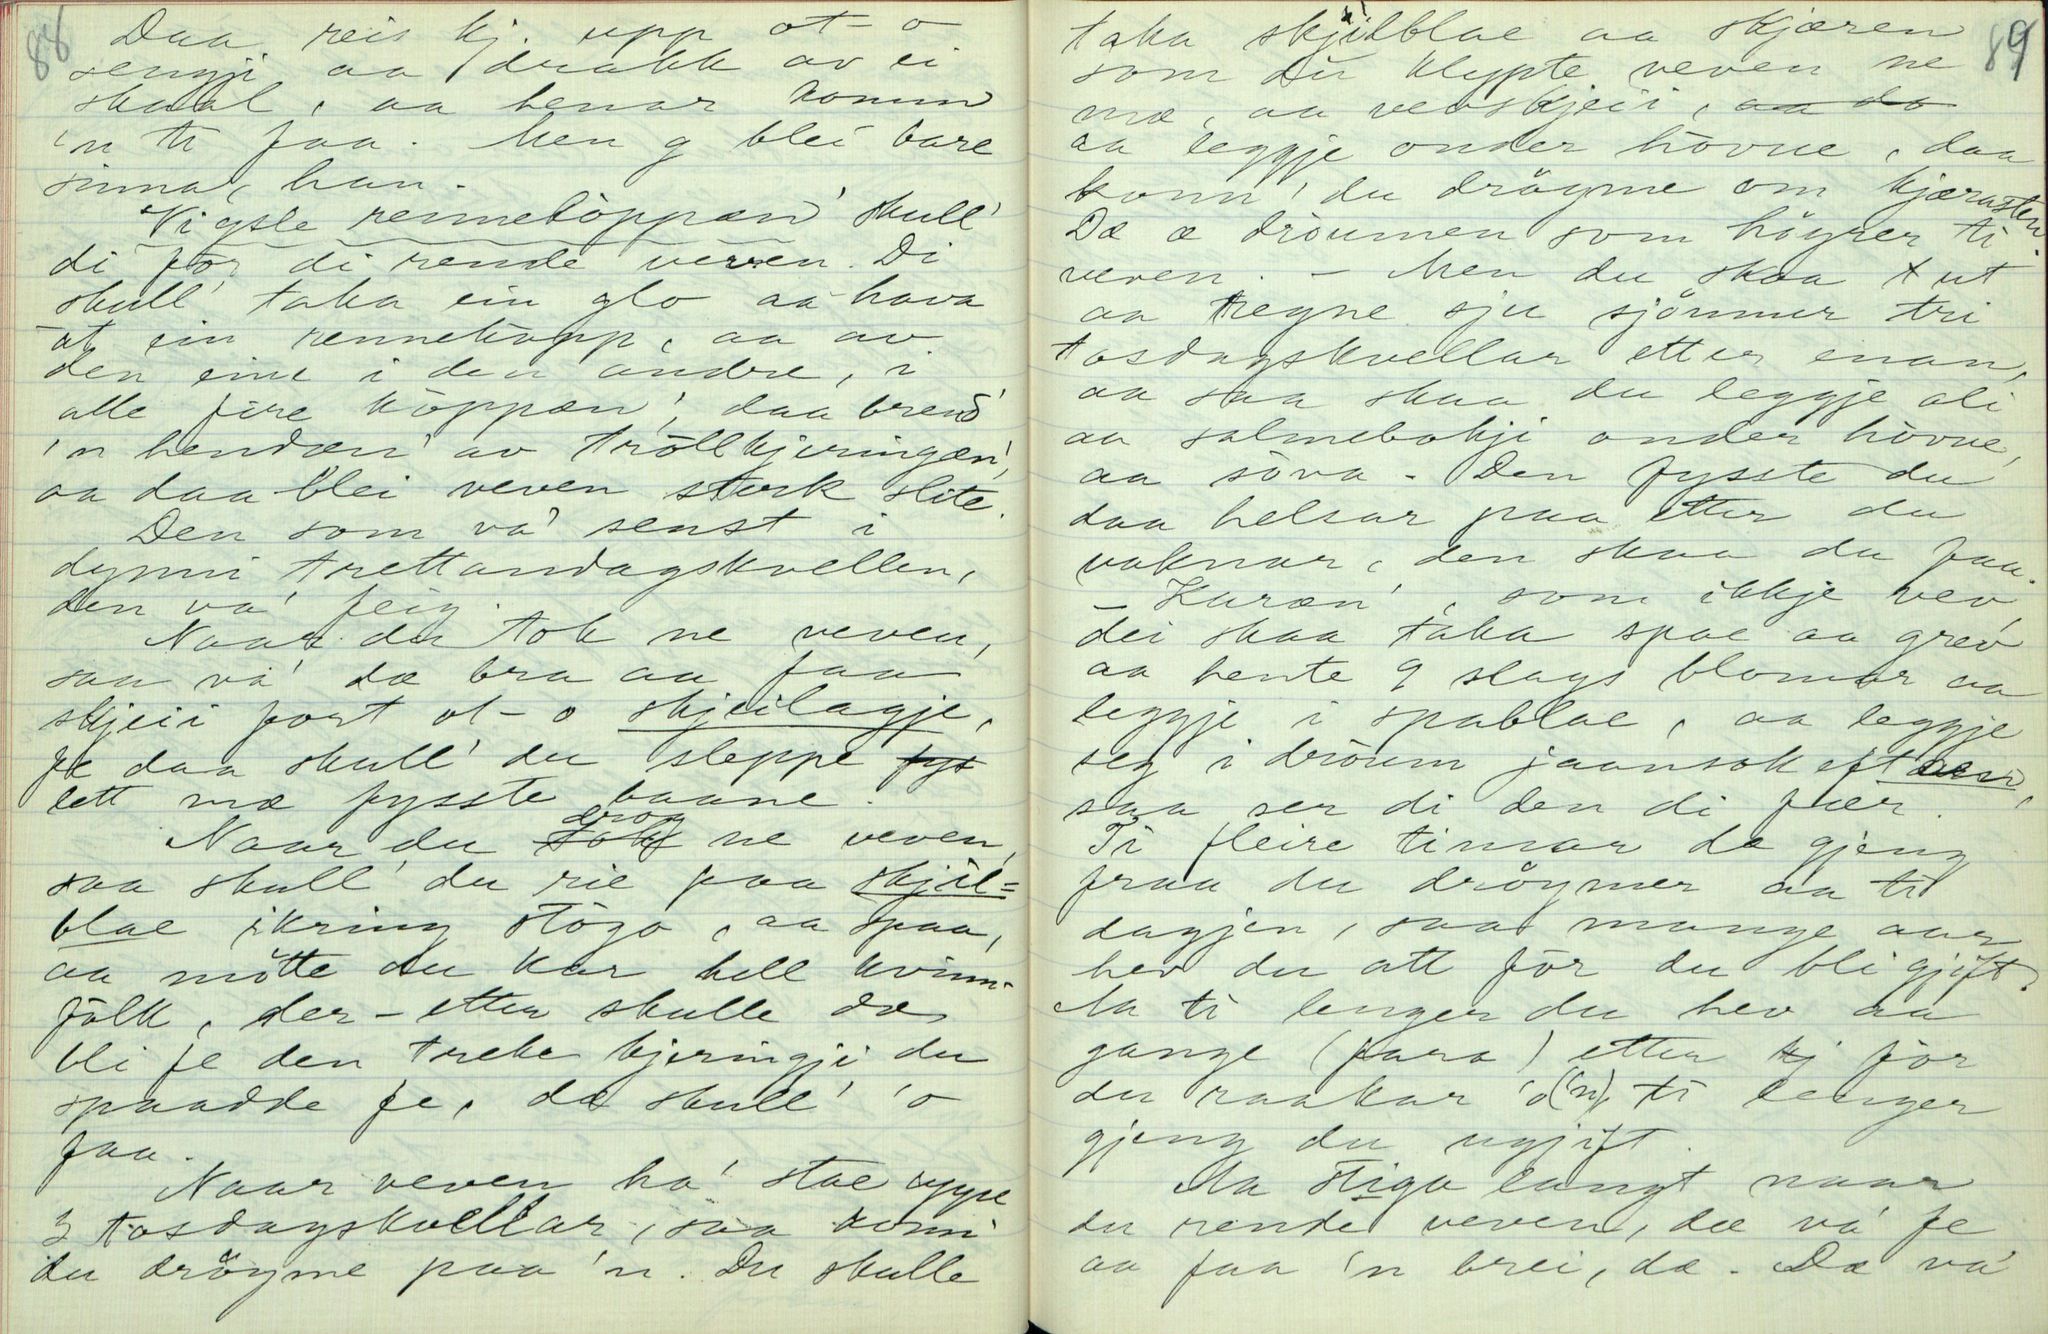 88
Daa reis kj. upp ot-o
sengji aa drakk av ei
skaal, aa henar komm
'n ti faa. Men g blei bare
sinna, han.
Vigsle rennetöppæn' skull'
di för di rende veven. Di
skull' taka ein glo aa hava
åt ein rennetöpp, aa av
den eine i den andre, i
alle fire köppæn', daa brend'
'n hendæn' av tröllkjeringæn',
aa daa blei veven sterk slite.
Den som va' senst i
dynni trettandagskvellen,
den va' feig.
Naar du tok ne veven,
saa va' dæ bra aa faa
skjeii fort ot-o skjeilagje,
fe daa skull' du sleppe fys
lett mæ fysste baane.
Naar du tok drog ne veven,
saa skull' du rie paa skjil=
blae ikring stögo, aa spaa,
aa mötte du kar hell kvinn-
fölk, der-etter skulle dæ
bli fe den treke kjeringji du
spaadde fe, dæ skull' 'o
faa.
Naar veven ha' stae uppe
3 tosdagskvellar, saa konn'
du dröyme paa 'n. Du skulle
89
taka skjilblae aa skjæren
som du klypte veven ne
mæ, aa vevskjeii, aa da
aa leggje onder hövue, daa
konn' du dröyme om kjærasten.
Dæ æ dröumen som höyrer ti
veven. - Men du skaa t ut
aa tregne sju sjönner tri
tosdagskvellar etter enan,
aa saa skaa du leggje ali
aa salmebokji onder hövue,
aa söva. Den fysste du
daa helsar paa etter du
vaknar, den skaa du faa.
- Karæn', som ikkje vev,
dei skaa taka spae aa grev
aa hente 9 slags blomar aa
leggje i spablae, aa leggje
seg i dröum jaansok eftaen,
saa ser di den di fær.
Ti fleire timar dæ gjeng
fraa du dröymer aa ti
dagjen, saa mange aar
hev du att för du bli gjift.
Aa ti lenger du hev aa
gange (fara) etter kj för
du raakar 'o ('n), ti lenger
gjeng du ugjift.
Aa stiga langt naar
du rende veven, dæ va' fe
aa faa 'n brei, dæ. Dæ va'